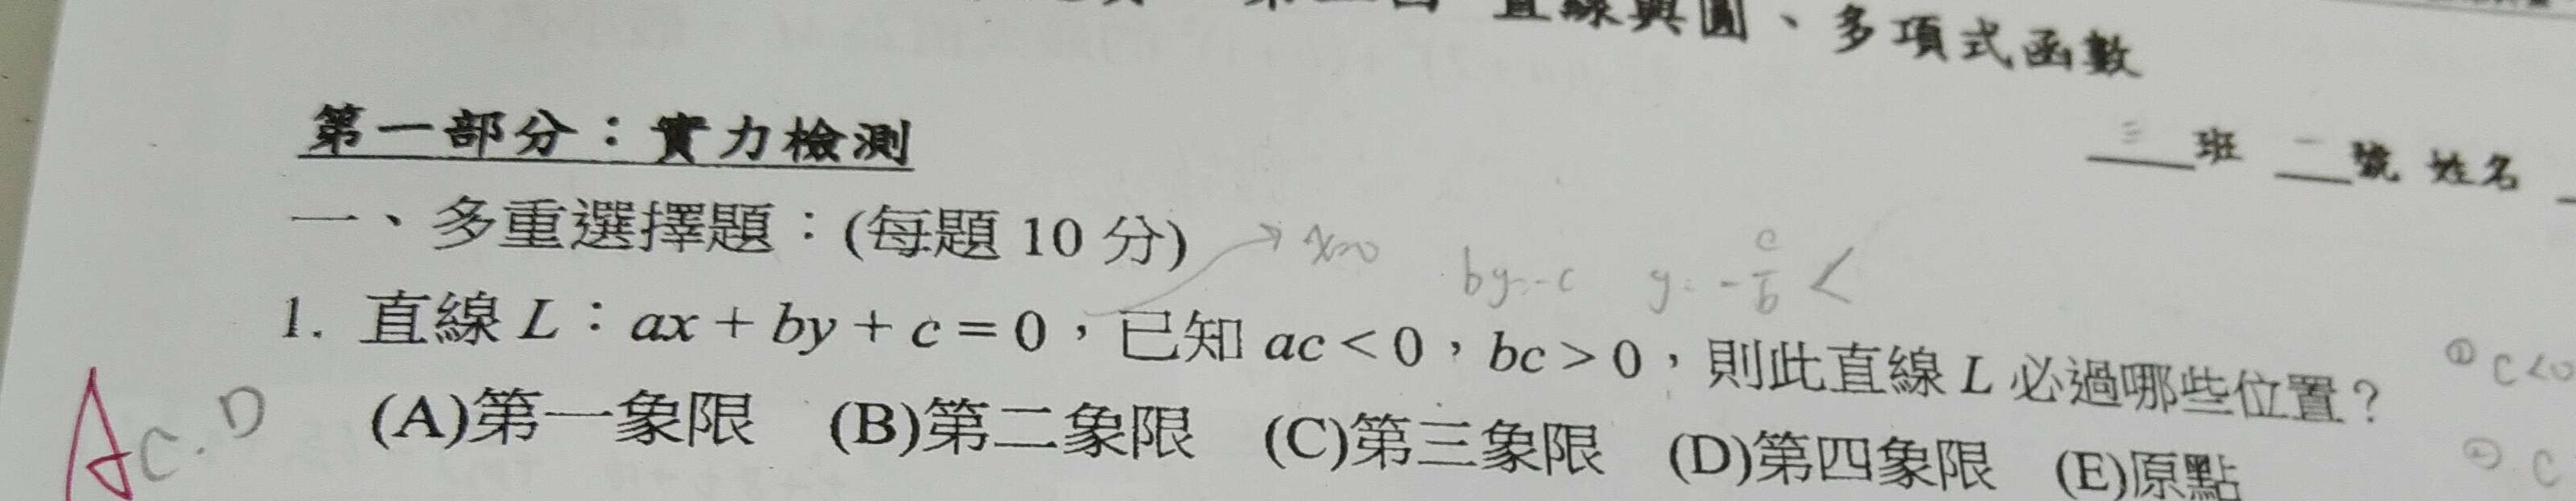 直線與圓、多項式函數
第一部分：實力檢測
三班 一號 姓名
一、多重選擇題：(每題 10 分)
x=0 by=-c y=-c/b <
1. 直線 L：ax + by + c = 0，已知 ac < 0，bc > 0，則此直線 L 必過哪些位置？
① c<0
A C.D
(A)第一象限 (B)第二象限 (C)第三象限 (D)第四象限 (E)原點
② c